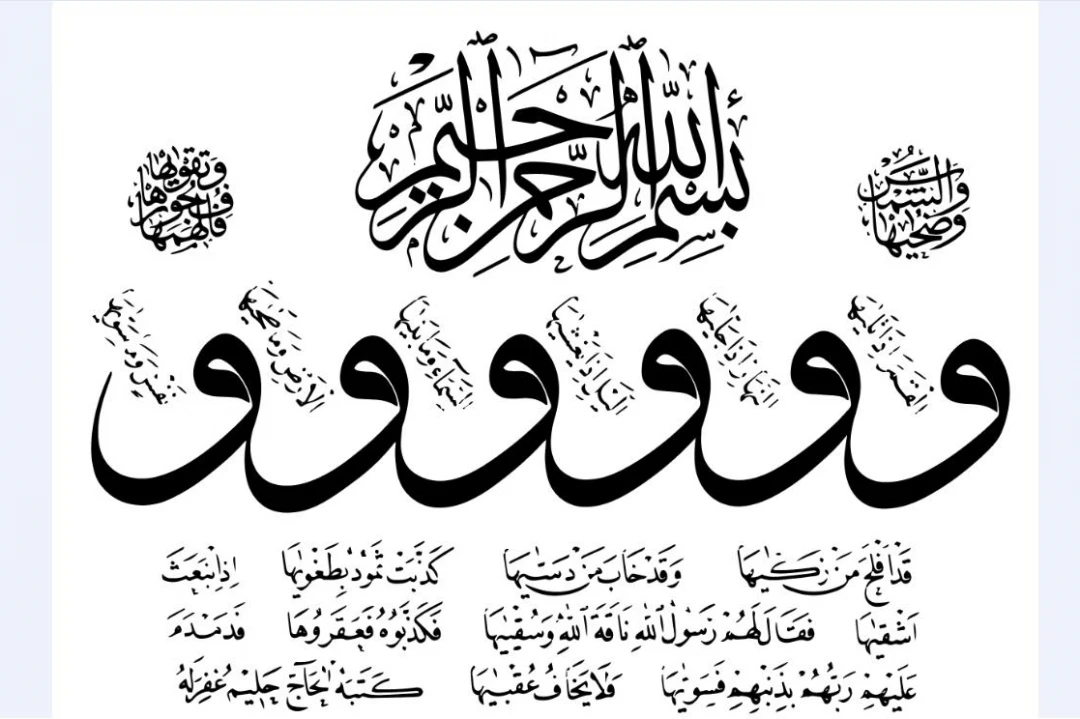 بِسْمِ اللّٰهِ الرَّحْمٰنِ الرَّحِيمِ
وَالشَّمْسِ وَضُحٰيهَا
وَالْقَمَرِ اِذَا تَلٰيهَا
وَالنَّهَارِ اِذَا جَلّٰيهَا
وَالَّيْلِ اِذَا يَغْشٰيهَا
وَالسَّمَاءِ وَمَا بَنٰيهَا
وَالْاَرْضِ وَمَا طَحٰيهَا
وَنَفْسٍ وَمَا سَوّٰيهَا
فَاَلْهَمَهَا فُجُورَهَا وَتَقْوٰيهَا
قَدْ اَفْلَحَ مَنْ زَكّٰيهَا وَقَدْ خَابَ مَنْ دَسّٰيهَا كَذَّبَتْ ثَمُودُ بِطَغْوٰيهَا اِذِ انْبَعَثَ
اَشْقٰيهَا فَقَالَ لَهُمْ رَسُولُ اللّٰهِ نَاقَةَ اللّٰهِ وَسُقْيٰيهَا فَكَذَّبُوهُ فَعَقَرُوهَا فَدَمْدَمَ
عَلَيْهِمْ رَبُّهُمْ بِذَنْبِهِمْ فَسَوّٰيهَا وَلَا يَخَافُ عُقْبٰيهَا كَتَبَهُ الْحَاجّ حَلِيمْ غُفِرَلَهُ